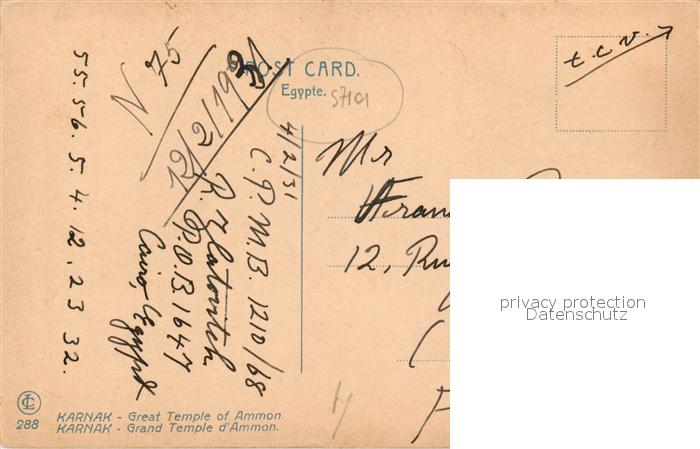 POST CARD.
Egypte.
57101
t.c.v.
N 75
12/2/1931
4/2/31
C.P.M.B. 1210/68
R. Zlatovitch
P.O.B 1647
Cairo, Egypt
55.56.5.4.12.23 32.
Mr
12,
privacy protection
Datenschutz
288
KARNAK - Great Temple of Ammon.
KARNAK - Grand Temple d'Ammon.